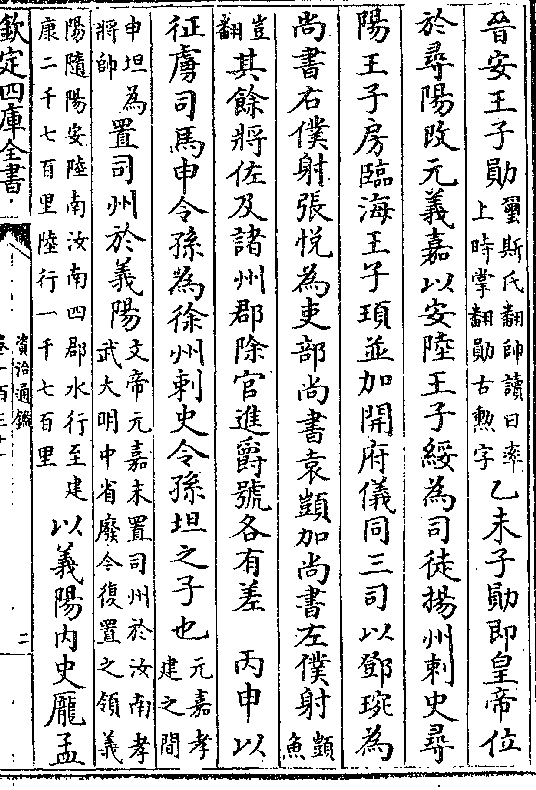 晉安王子勛璽斯氏翻帥讀曰率上時掌翻勛古勲字乙未子勛即皇帝位
於尋陽改元義嘉以安陸王子綏為司徒揚州刺史尋
陽王子房臨海王子頊並加開府儀同三司以鄧琬為
尚書右僕射張悦為吏部尚書袁顗加尚書左僕射顗魚
豈翻其餘將佐及諸州郡除官進爵號各有差　丙申以
征虜司馬申令孫為徐州刺史令孫坦之子也元嘉孝建之間
申坦為將帥置司州於義陽文帝元嘉末置司州於汝南孝武大明中省廢今復置之領義
陽隨陽安陸南汝南四郡水行至建康二千七百里陸行一千七百里以義陽内史龐孟
欽定四庫全書
資治通鑑
卷一百三十一
二